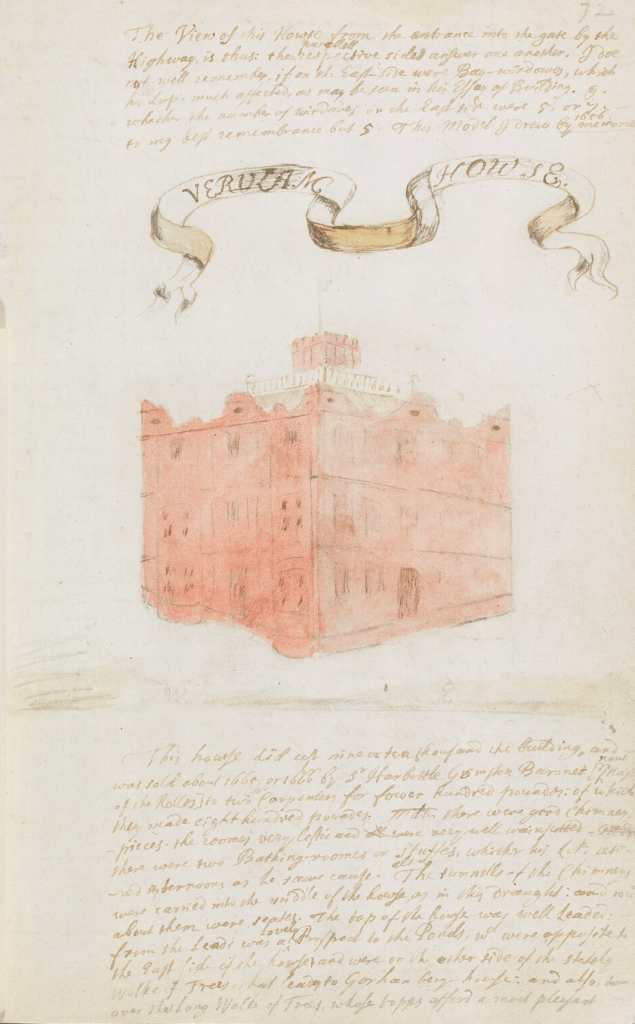 72
The View of this Howse from the entrance into the gate by the
parallell
Highway, is thus: the respective sides answer one another. I doe
not well remember, if on the East side were Bay-windowes, which
his Lop: much affected, as may be seen in his Essay of Building. Q.
whether the number of windowes on the East side were 5, or 7:
1656
to my best remembrance but 5. This Model I drew by memorie
VERULAM HOWSE.
This howse did cost nine or ten thousand the building, and
was sold about 1665 or 1666 by Sr Harbottle Grimston Baronet, (now
of the Rolles) to two Carpenters for fower hundred poundes: of which
they made eight hundred poundes. Mdm there were good Chimney
pieces: the roomes very loftie and were very well wainscotted
there were two Bathing-roomes or Stuffes, whither his Lp.
afternoons as he sawe cause. All the tunnells of the Chimneys
were carried into the middle of the howse, as in this draught: and
about them were seates. The top of the howse was well Leaded:
from the Leads was a Lovely Prospect to the Ponds, wch were opposite to
the East side of the howse, and were on the other side of the stately
Walke of Trees, that leads to Gorhambery-howse: and also,
over that Long Walke of Trees, whose topps afford a most pleasant